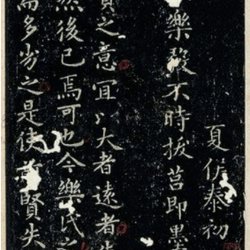 夏侯泰初
樂毅不時拔莒即墨
賢之意宜以大者遠者先
然後已焉可也今樂氏之
而多劣之是使賢失